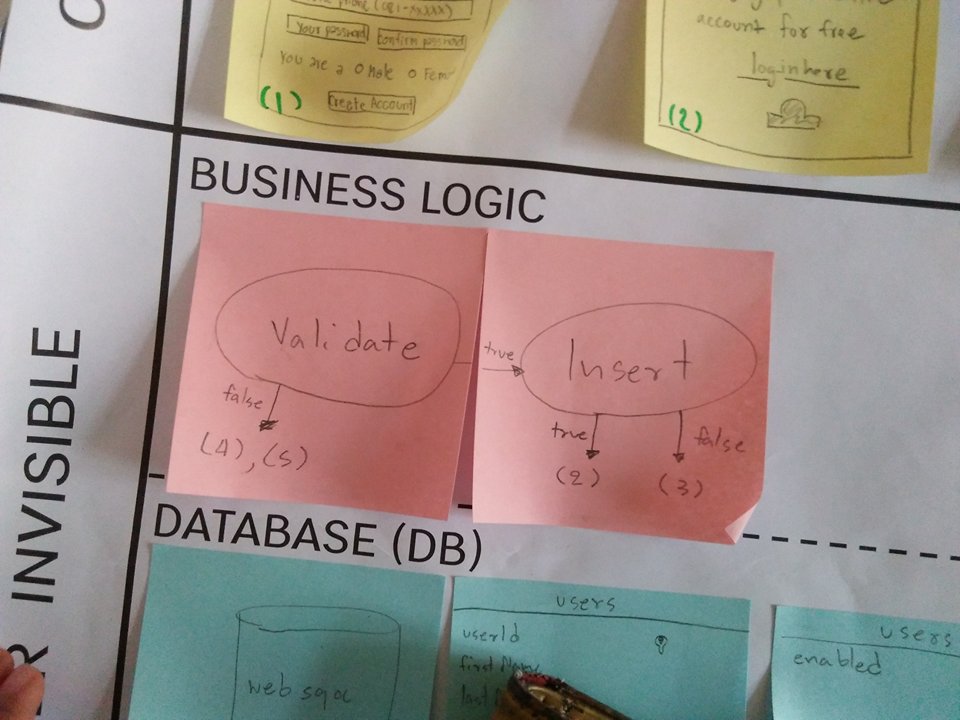 phone (081-xxxxx)
Your password
Confirm password
You are a O Male O Fem
Create Account
(1)
account for free
login here
(2)
BUSINESS LOGIC
Validate
false
(4), (5)
true
Insert
true
false
(2)
(3)
INVISIBLE
DATABASE (DB)
web sqa
users
userId
first Name
last
users
enabled